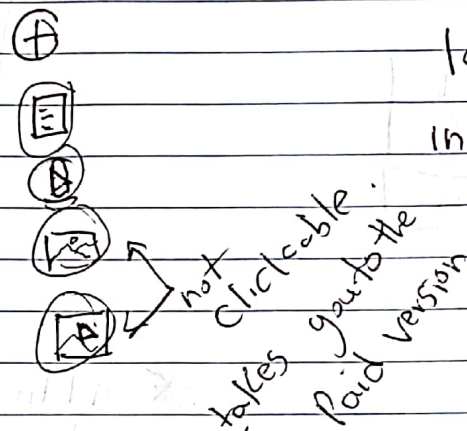 in
not
clickable.
takes you to the
Paid version